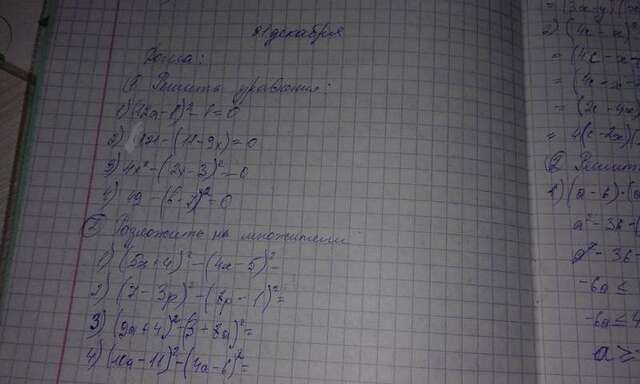 21 декабря
Дома:
① Решить уравнения:
1) (12a - 1)² - 1 = 0
2) 121 - (11 - 9x) = 0
3) 4x² - (2x - 3)² = 0
4) 49 - (6 - )² = 0
② Разложить на множители
1) (5x + 4)² - (4x - 5)² -
2) (7 - 3p)² - (8p - 1)² =
3) (9a + 4)² - (3 - 8a)² =
4) (10a - 11)² - (4a - 6)² =
2) (4c - x
= (4c - x -
= (4c - x -
= (2c - 4x)
= 4(c - 2x)(
② Решить
1) (a - 6) · (a
a² - 36 -
a² - 36 -
-6a ≤
-6a ≤ 4
a ≥